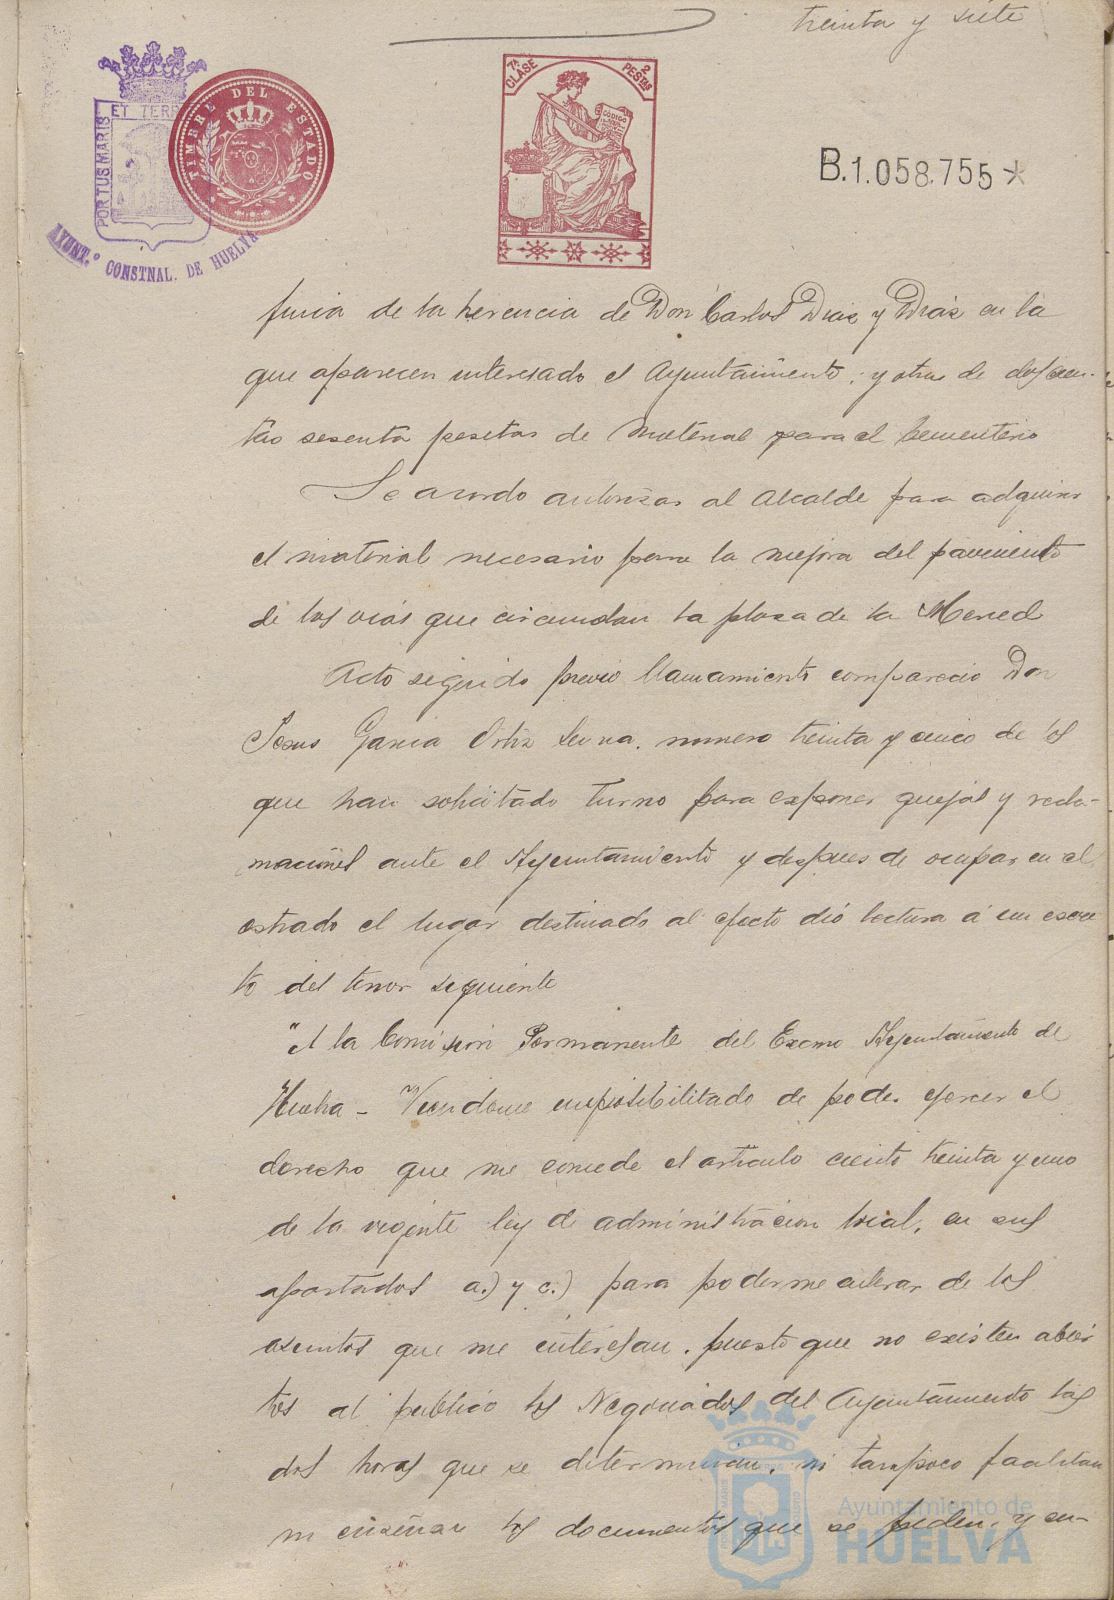 treinta y siete
7ª CLASE
2 PESETAS
CÓDIGO
TIMBRE DEL ESTADO
PORTUS MARIS ET TERR
AYUNT.º CONSTNAL. DE HUELVA
B.1.058.755*
de la herencia de Don Carlos Diaz y Diaz en la
que aparecen interesado el Ayuntamiento; y otra de doscien-
tas sesenta pesetas de material para el Cementerio
Se acordo autorizar al Alcalde para adquirir
el material necesario para la mejora del pavimento
de las vias que circundan la plaza de la Merced
Acto seguido previo llamamiento comparecio Don
Jesus Garcia Ortiz Serna, numero treinta y cinco de los
que han solicitado turno para exponer quejas y recla-
maciones ante el Ayuntamiento y despues de ocupar en el
estrado el lugar destinado al efecto dió lectura á un escri
to del tenor siguiente
"A la Comision Permanente del Excmo Ayuntamiento de
Huelva - Viendome imposibilitado de poder ejercer el
derecho que me concede el articulo ciento treinta y uno
de la vigente ley de administracion local, en sus
apartados a.) y c.) para poderme enterar de los
asuntos que me interesan, puesto que no existen abier
tos al publico los Negociados del Ayuntamiento las
dos horas que se determinan, ni tampoco facilitan
ni enseñan los documentos que se piden, y en-
Ayuntamiento de
HUELVA